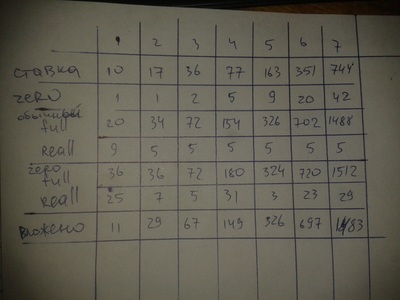 1 2 3 4 5 6 7
ставка 10 17 36 77 163 351 744
zero 1 1 2 5 9 20 42
обычный full 20 34 72 154 326 702 1488
reall 9 5 5 5 5 5 5
zero full 36 36 72 180 324 720 1512
reall 25 7 5 31 3 23 29
вложено 11 29 67 149 326 697 1483